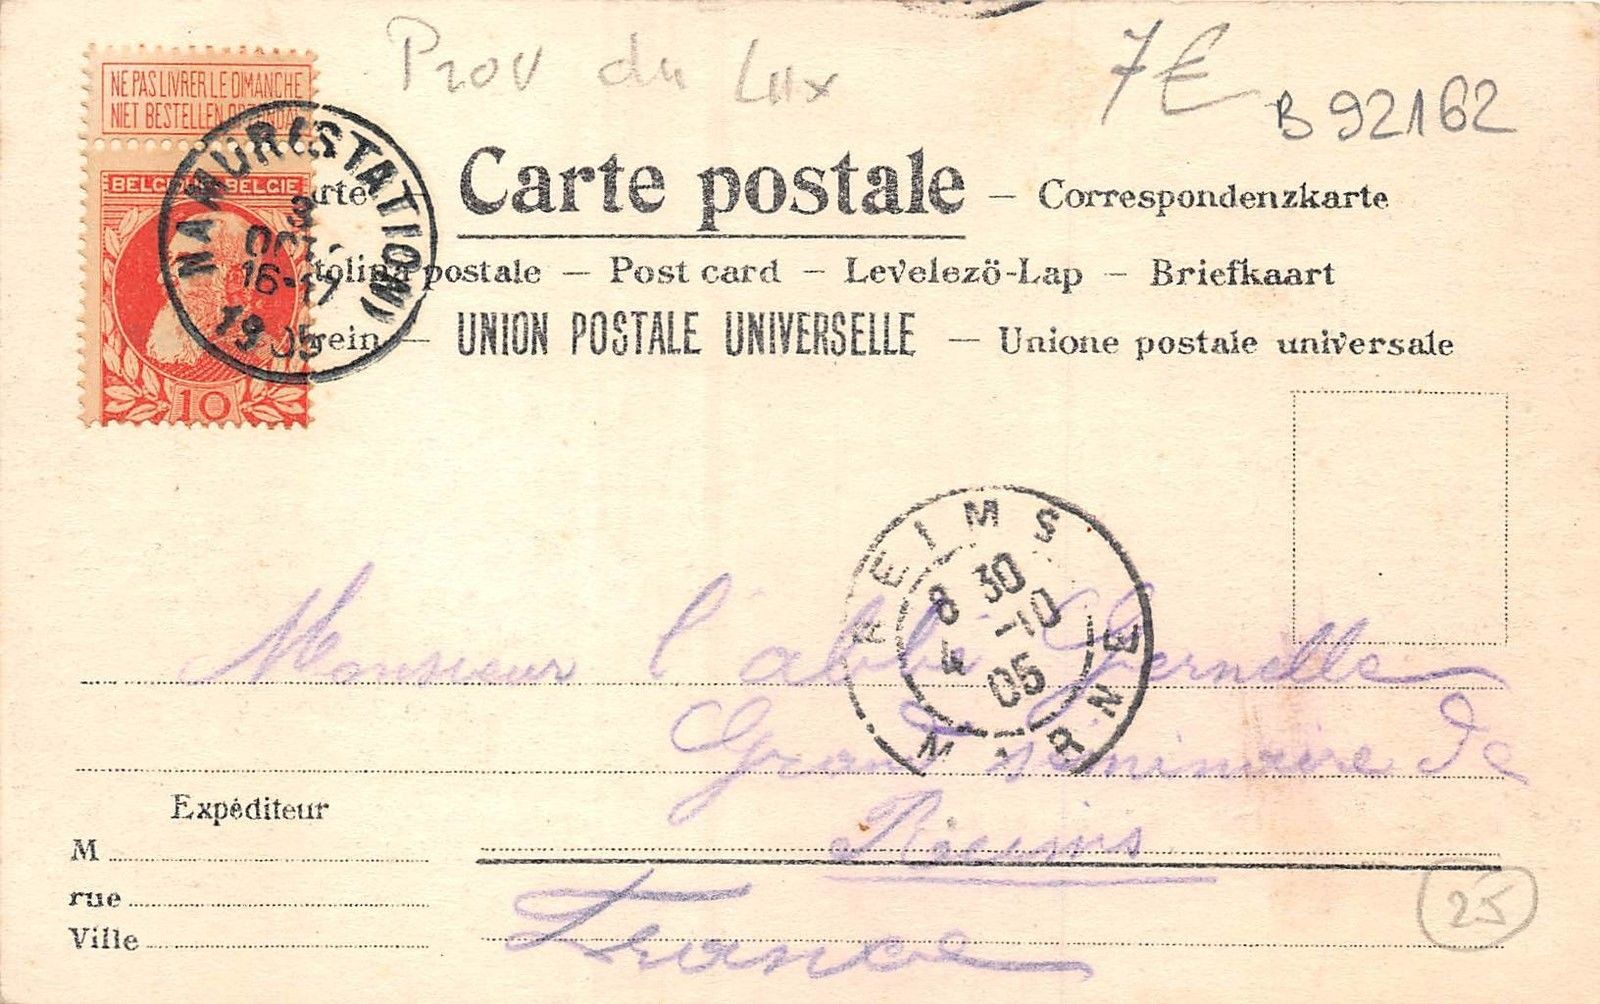 Prov du Lux
7€
B 92162
NE PAS LIVRER LE DIMANCHE
NIET BESTELLEN OP ZONDAG
BELGIQUE BELGIE
10
NAMUR (STATION)
3
OCT
16-17
1905
Carte postale — Correspondenzkarte
postale — Post card — Levelezö-Lap — Briefkaart
UNION POSTALE UNIVERSELLE — Unione postale universale
REIMS
8 30
4 -10
05
MARNE
Monsieur l'abbé Gernelle
Grand séminaire de
Rieums
France
Expéditeur
M
rue
Ville
25